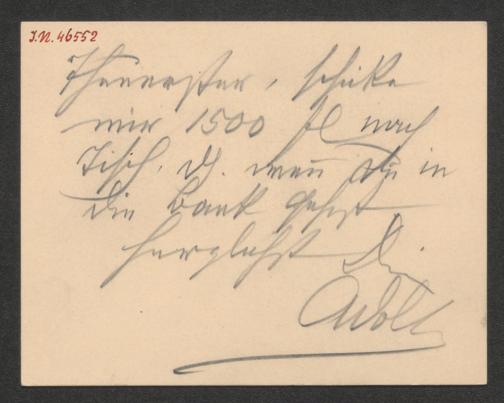 I.N. 46552
Theuerster, schicke
mir 1500 fl nach
Tisch, d.h. wenn Du in
die Bank gehst
herzlichst Dein
Adolf